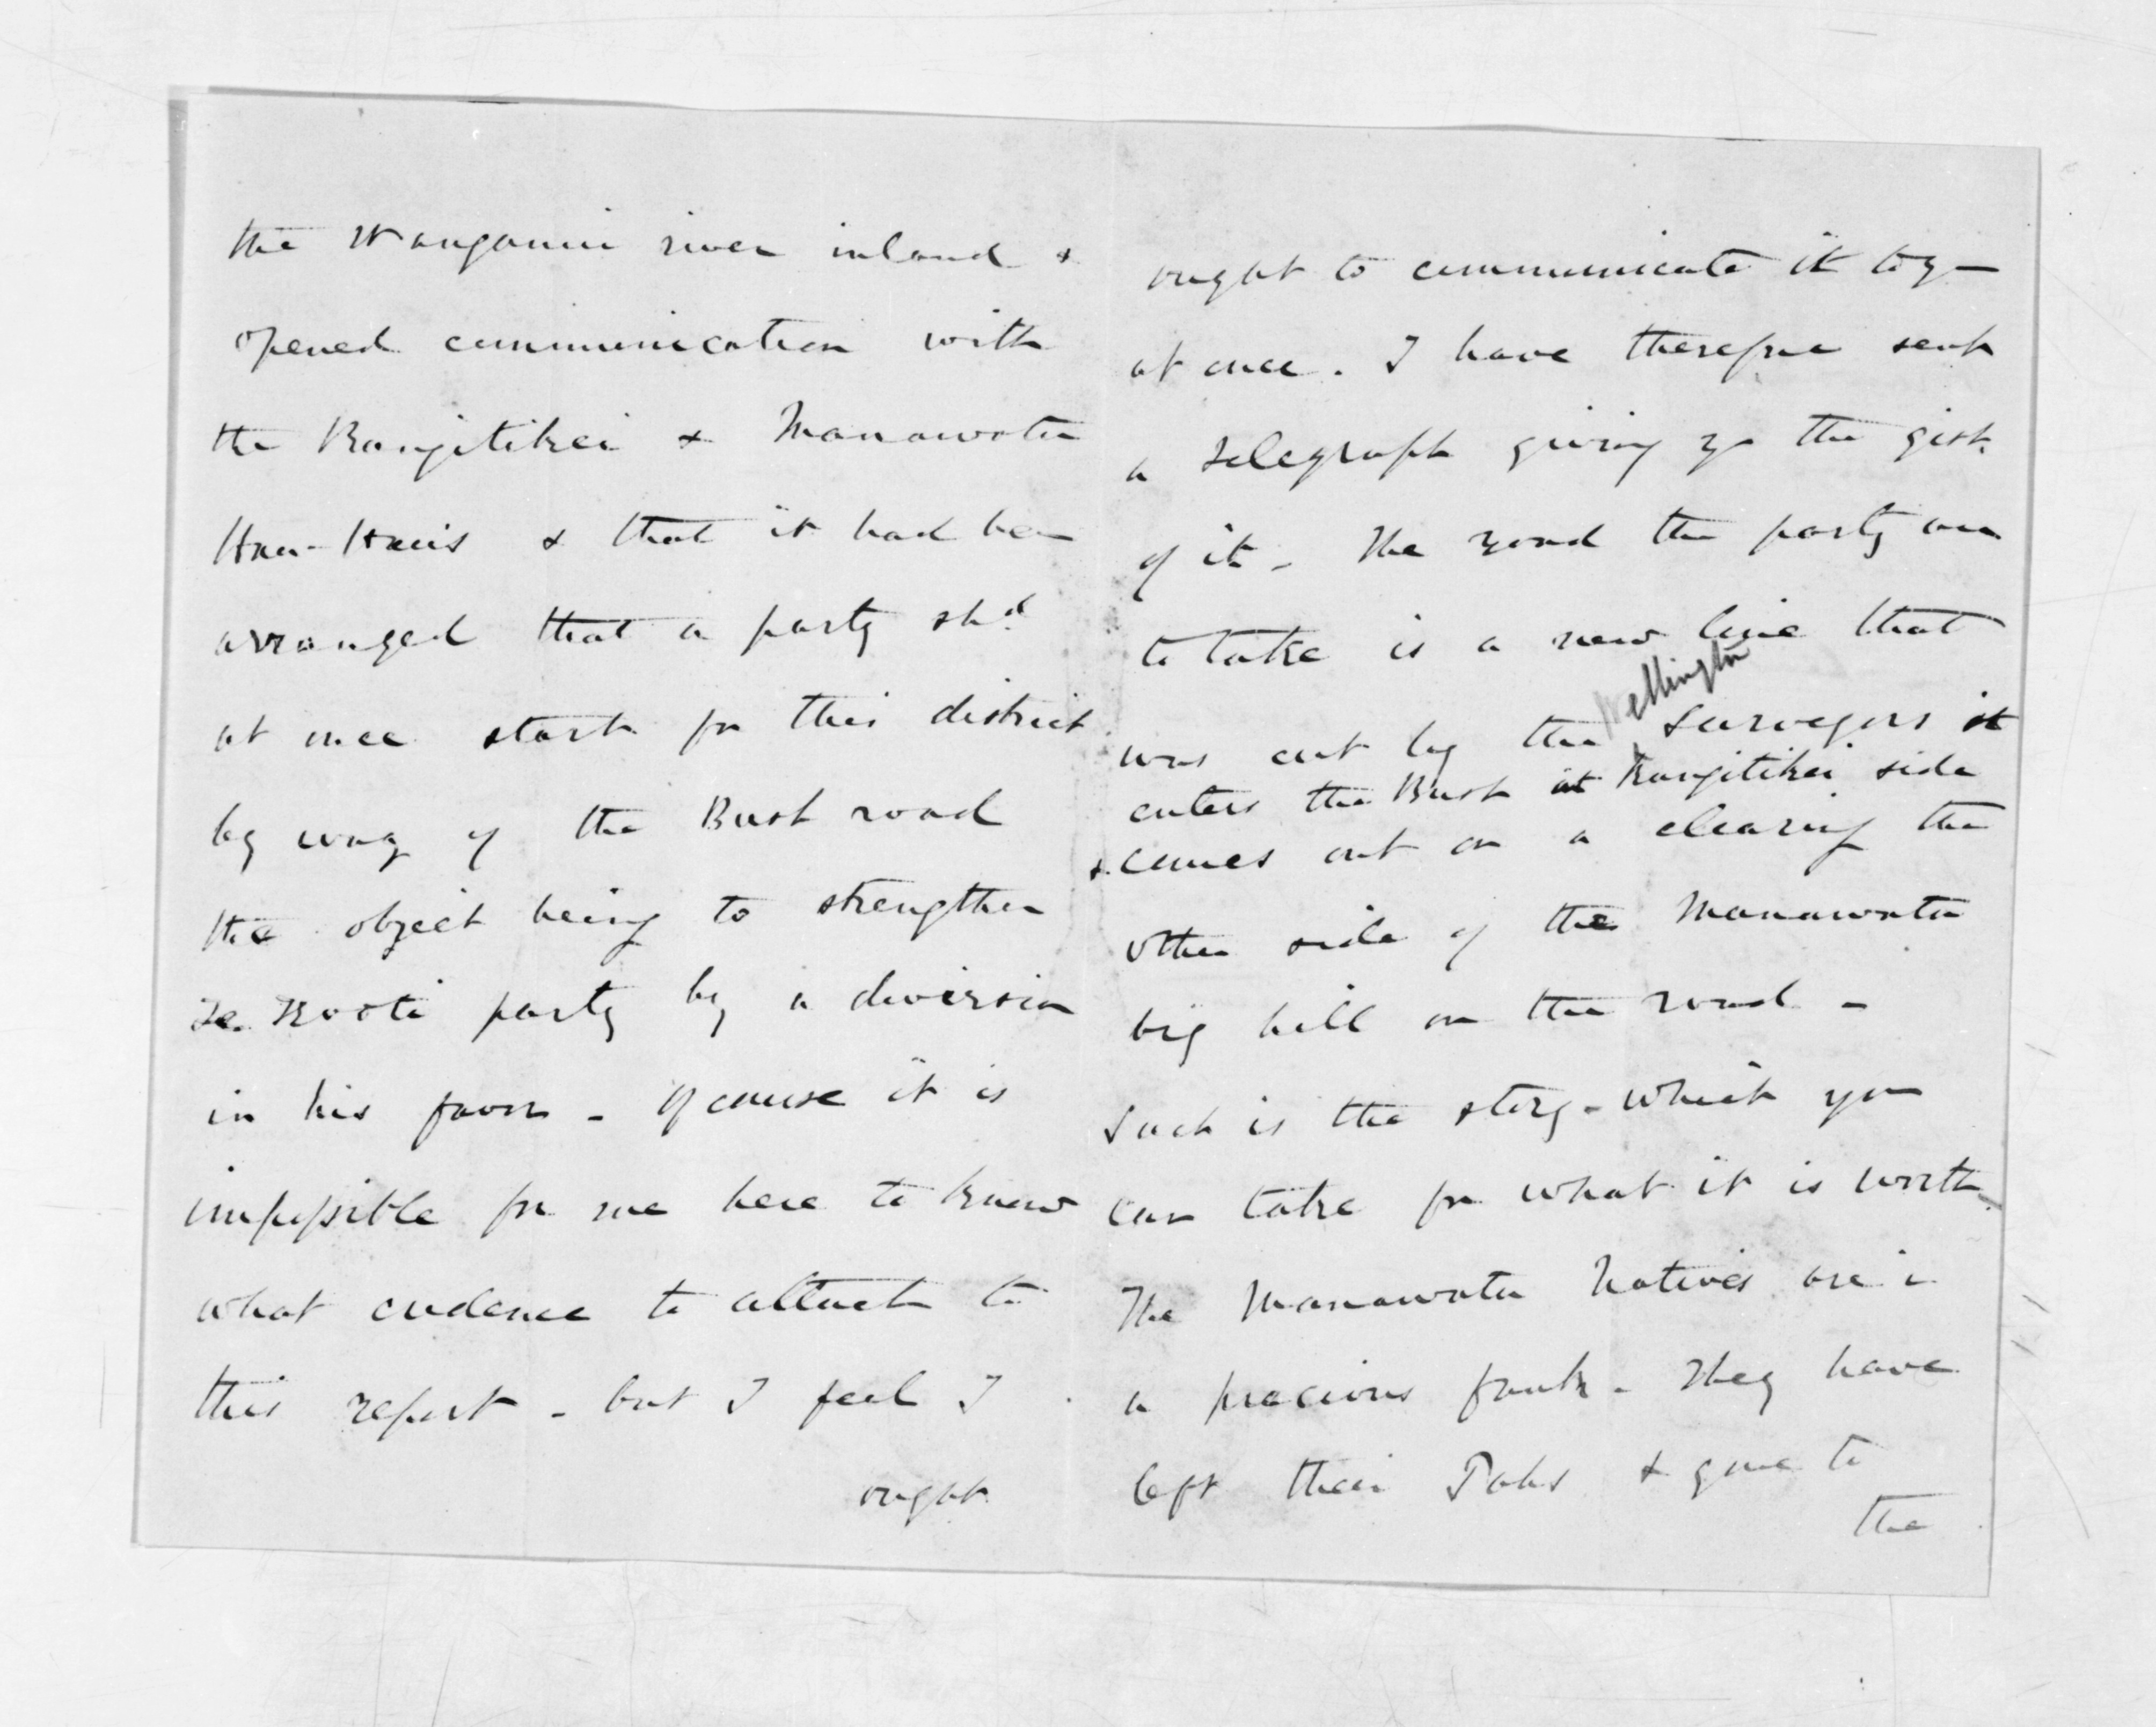 the Wanganui river inland &
opened communication with
the Rangitikei & Manawatu
Hau-Hauis & that it had been
arranged that a party shd
at once start for this district
by way of the Bush road
the object being to strengthen
Te Kooti party by a diversion
in his favor - Of course it is
impossible for me here to know
what credence to attach to
this report - but I feel I
ought
ought to communicate it to you
at once. I have therefore sent
a Telegraph giving you the gist
of it - The road the party are
to take is a new line that
was cut by the Wellington Surveyors it
enters the Bush at Rangitikei side
& comes out on a clearing the
other side of the Manawatu
big hill on the road -
Such is the story - which you
can take for what it is worth.
The Manawatu Natives are in
a precious funk - They have
left their Pahs & gone to
the